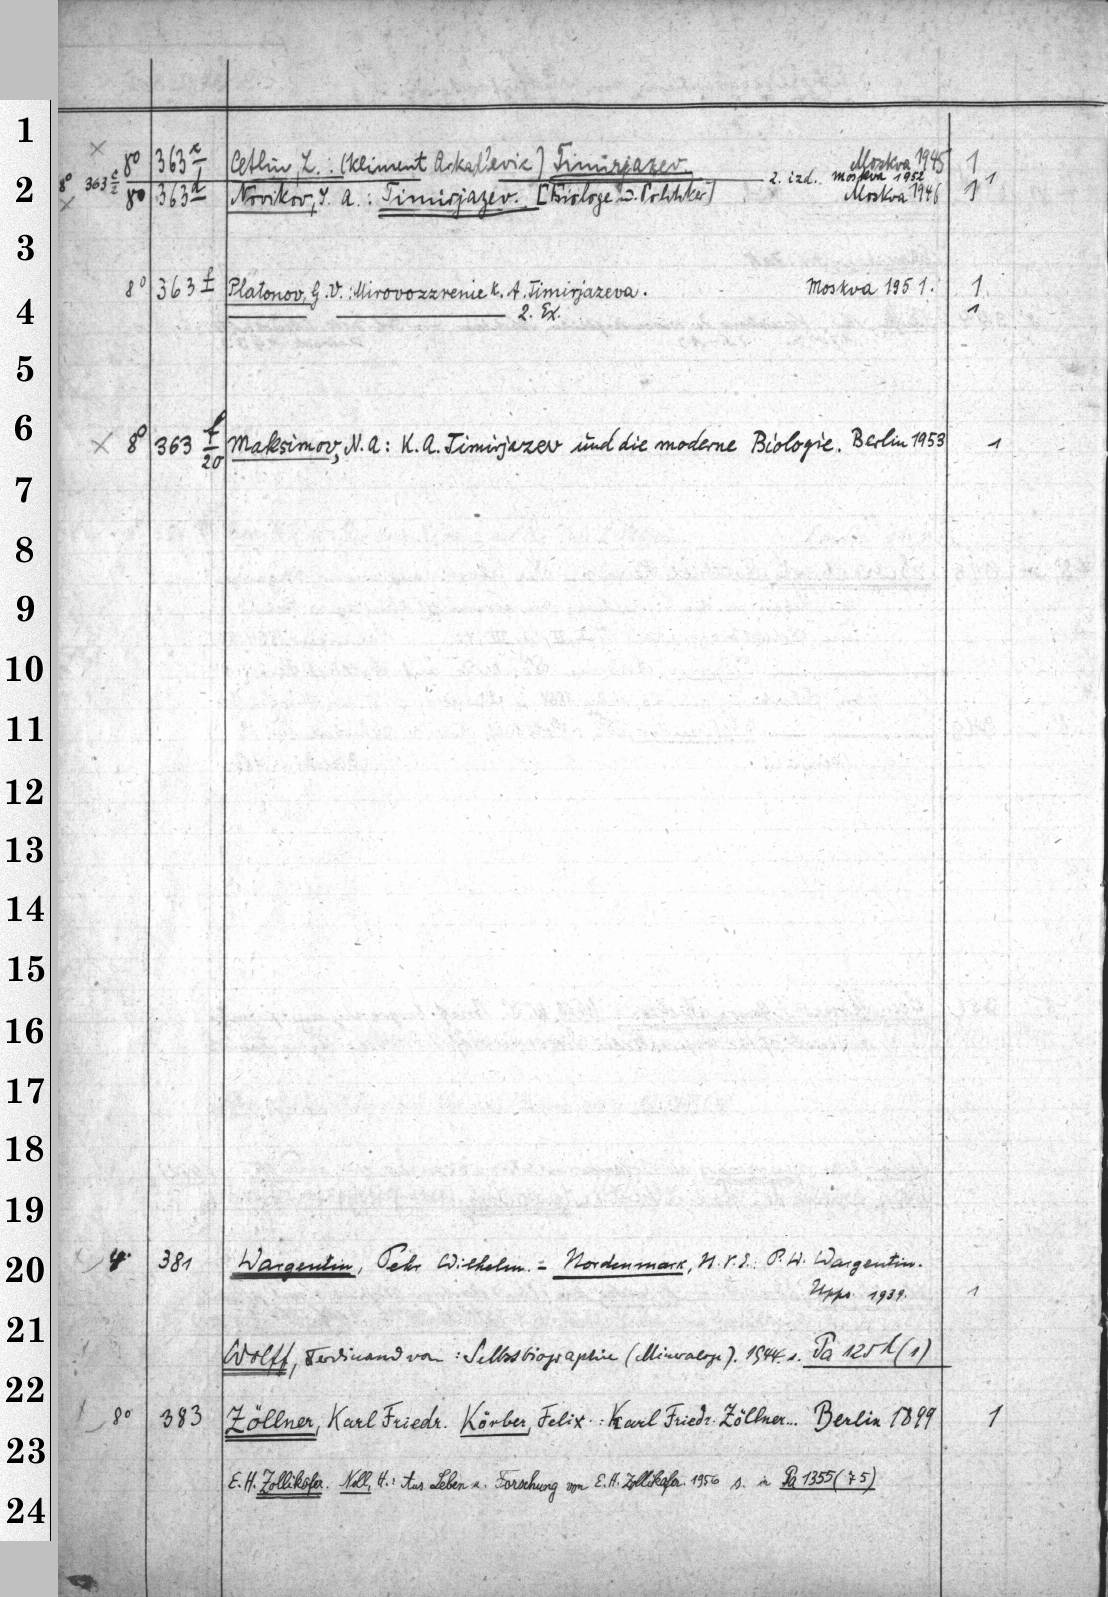 1
2
3
4
5
6
7
8
9
10
11
12
13
14
15
16
17
18
19
20
21
22
23
24
× 8° 363 Cetlin, L.: (Kliment Arkad'evic) Timirjazev. Moskva 1945 1
8° 363 2. izd. Moskva 1952 1
× 8° 363 Novikov, S. A.: Timirjazev. [Biologe u. Politiker] Moskva 1946 1
8° 363 f Platonov, G.V.: Mirovozzrenie K. A. Timirjazeva. Moskva 1951. 1
2. Ex. 1
× 8° 363 f/20 Maksimov, N.A: K.A. Timirjazev und die moderne Biologie. Berlin 1953 1
4° 381 Wargentin, Pehr Wilhelm. = Nordenmark, N.V.E.: P.W. Wargentin.
Upps. 1939. 1
Wolff, Ferdinand von: Selbstbiographie (Mineraloge). 1944. s. Pa 125 (1)
8° 383 Zöllner, Karl Friedr. Körber, Felix: Karl Friedr. Zöllner... Berlin 1899 1
E.H. Zollikofer. Noll, H.: Aus Leben u. Forschung von E.H. Zollikofer. 1956 s. in Pa 1355 (75)